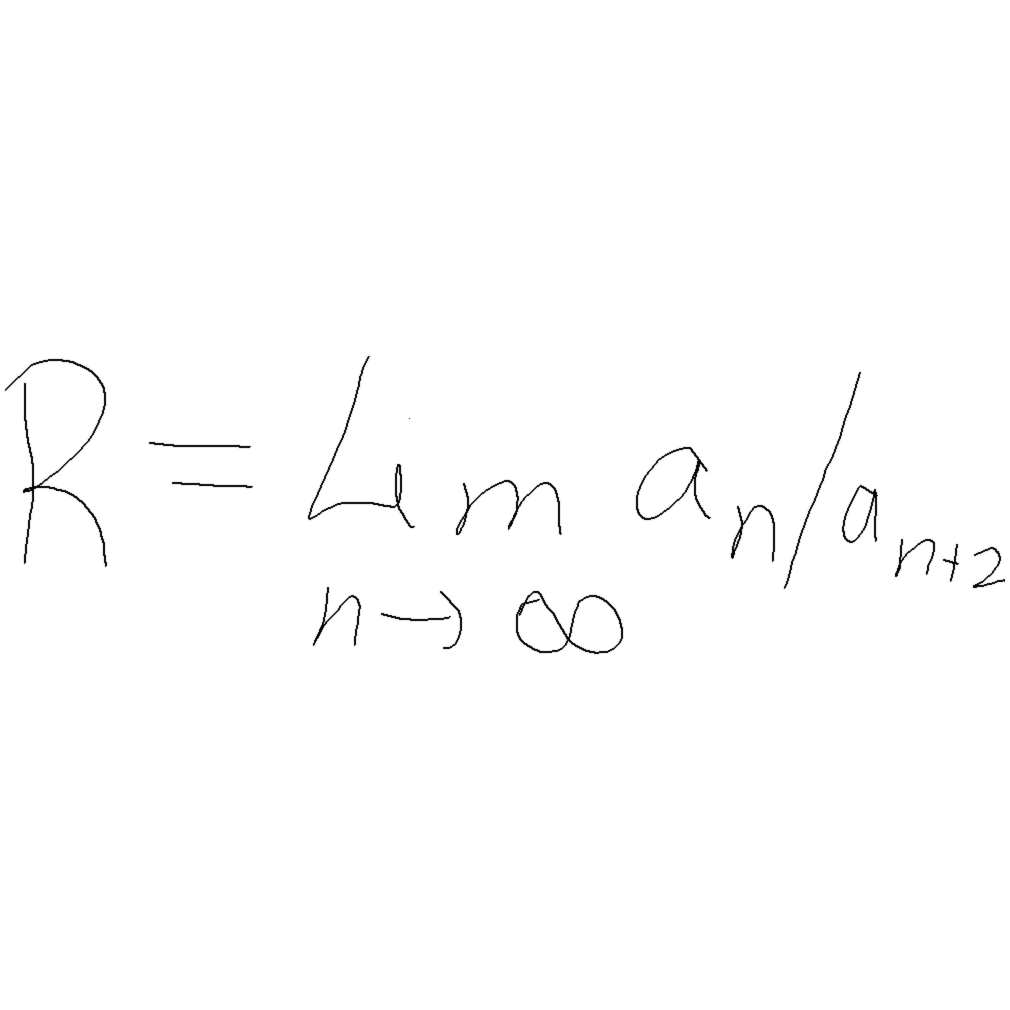 R = Lim aₙ/aₙ₊₂
n → ∞